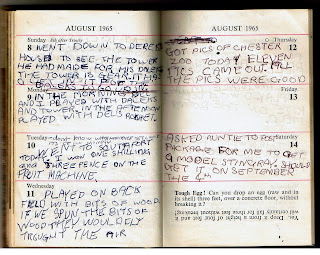 AUGUST 1965
Sunday 8th after Trinity
8 WENT DOWN TO DEREKS
HOUSE TO SEE THE TOWER
HE HAD MADE FOR HIS
THE TOWER IS GEAR. IT HAS
IN IT FOR
9 IN THE MORNING ERIC
AND I PLAYED WITH DALEKS
AND TOWER. IN THE AFTERNOON
PLAYED WITH DEL'S ROCKET.
Tuesday
10 WENT TO SOUTHPORT
TODAY I WON ONE SHILLING
AND THREEPENCE ON THE
FRUIT MACHINE.
Wednesday
11 PLAYED ON BACK
FIELD WITH BITS OF WOOD.
IF WE SPUN THE BITS OF
WOOD THEY WOULD FLY
THROUGHT THE AIR
AUGUST 1965
Thursday
12
GOT PICS OF CHESTER
ZOO TODAY ELEVEN
PICS CAME OUT. ALL
THE PICS WERE GOOD
Friday
13
Saturday
14
ASKED AUNTIE TO
PACKAGE FOR ME TO GET
A MODEL STINGRAY. SHOULD
GET IT ON SEPTEMBER
THE 4TH
Tough Egg! Can you drop an egg (raw and in
its shell) three feet, over a concrete floor, without
breaking it?
Drop it from a height of four feet. And
it will certainly fall for three feet without breaking!